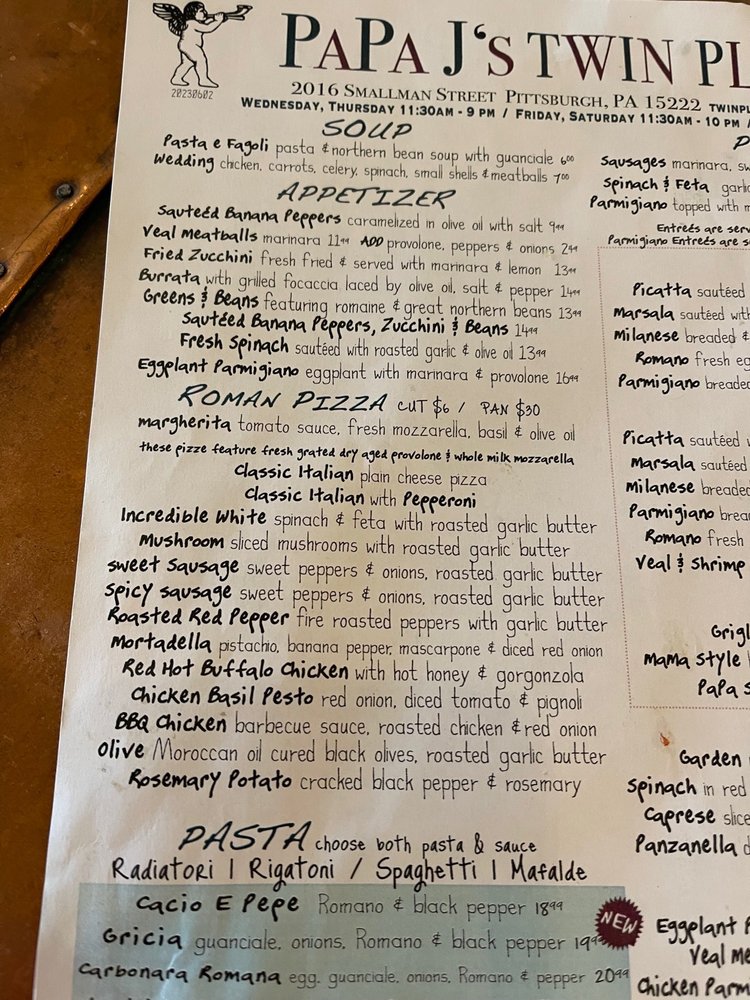 PAPA J'S TWIN PL
20230602
2016 SMALLMAN STREET PITTSBURGH, PA 15222 TWINPL
WEDNESDAY, THURSDAY 11:30AM - 9 PM / FRIDAY, SATURDAY 11:30AM - 10 PM /
SOUP
Pasta e Fagoli pasta & northern bean soup with guanciale 6⁰⁰
Wedding chicken, carrots, celery, spinach, small shells & meatballs 7⁰⁰
APPETIZER
Sauteéd Banana Peppers caramelized in olive oil with salt 9⁹⁹
Veal Meatballs marinara 11⁹⁹ ADD provolone, peppers & onions 2⁹⁹
Fried Zucchini fresh fried & served with marinara & lemon 13⁹⁹
Burrata with grilled focaccia laced by olive oil, salt & pepper 14⁹⁹
Greens & Beans featuring romaine & great northern beans 13⁹⁹
Sautéed Banana Peppers, Zucchini & Beans 14⁹⁹
Fresh Spinach sautéed with roasted garlic & olive oil 13⁹⁹
Eggplant Parmigiano eggplant with marinara & provolone 16⁹⁹
ROMAN PIZZA CUT $6 / PAN $30
margherita tomato sauce, fresh mozzarella, basil & olive oil
these pizze feature fresh grated dry aged provolone & whole milk mozzarella
Classic Italian plain cheese pizza
Classic Italian with Pepperoni
Incredible White spinach & feta with roasted garlic butter
Mushroom sliced mushrooms with roasted garlic butter
sweet Sausage sweet peppers & onions, roasted garlic butter
spicy sausage sweet peppers & onions, roasted garlic butter
Roasted Red Pepper fire roasted peppers with garlic butter
Mortadella pistachio, banana pepper, mascarpone & diced red onion
Red Hot Buffalo Chicken with hot honey & gorgonzola
Chicken Basil Pesto red onion, diced tomato & pignoli
BBQ Chicken barbecue sauce, roasted chicken & red onion
Olive Moroccan oil cured black olives, roasted garlic butter
Rosemary Potato cracked black pepper & rosemary
PASTA choose both pasta & sauce
Radiatori | Rigatoni / Spaghetti | Mafalde
Cacio E Pepe Romano & black pepper 18⁹⁹
Gricia guanciale, onions, Romano & black pepper 19⁹⁹
NEW
Carbonara Romana egg, guanciale, onions, Romano & pepper 20⁹⁹
P
Sausages marinara, sw
Spinach & Feta garli
Parmigiano topped with m
Entreés are serv
Parmigiano Entreés are s
Picatta sautéed
Marsala sautéed with
Milanese breaded &
Romano fresh eg
Parmigiano breaded
Picatta sautéed w
Marsala sautéed
Milanese breaded
Parmigiano bread
Romano fresh
Veal & Shrimp
Grigl
Mama Style
PaPa S
Garden
Spinach in red
Caprese slice
Panzanella d
Eggplant P
Veal Me
Chicken Parm